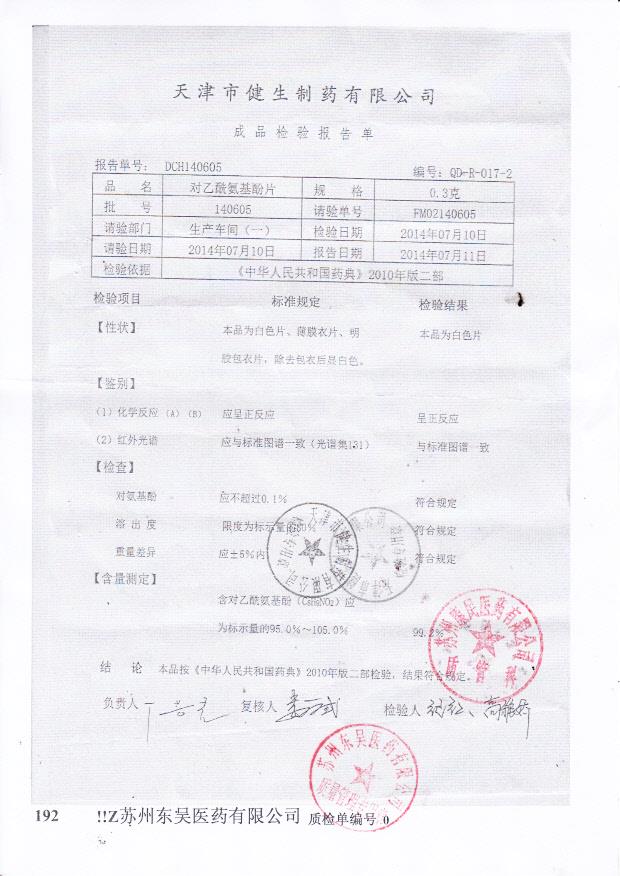 天津市健生制药有限公司
成品检验报告单
报告单号： DCH140605 编号：QD-R-017-2
品 名 对乙酰氨基酚片 规 格 0.3克
批 号 140605 请验单号 FM02140605
请验部门 生产车间（一） 检验日期 2014年07月10日
请验日期 2014年07月10日 报告日期 2014年07月11日
检验依据 《中华人民共和国药典》2010年版二部
检验项目 标准规定 检验结果
【性状】 本品为白色片、薄膜衣片、明 本品为白色片
胶包衣片，除去包衣后显白色。
【鉴别】
（1）化学反应（A）（B） 应呈正反应 呈正反应
（2）红外光谱 应与标准图谱一致（光谱集131） 与标准图谱一致
【检查】
对氨基酚 应不超过0.1% 符合规定
溶 出 度 限度为标示量的80% 符合规定
重量差异 应±5%内 符合规定
【含量测定】
含对乙酰氨基酚（C8H9NO2）应
为标示量的95.0%～105.0% 99.2%
结 论 本品按《中华人民共和国药典》2010年版二部检验，结果符合规定。
负责人 复核人 检验人
天津市健生制药有限公司
苏州康民医药有限公司
质管科
苏州东吴医药有限公司
192 !!Z苏州东吴医药有限公司 质检单编号 0